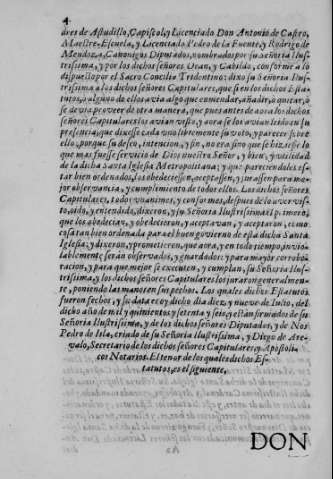 4
dres de Astudillo, Capiscol, y Licenciado Don Antonio de Castro,
Maestre-Escuela, y Licenciado Pedro de la Fuente, y Rodrigo de
Mendoza, Canonigos Diputados, nombrados por su Señoria Ilus-
trissima, y por los dichos señores Dean, y Cabildo, conforme à lo
dispuesto por el Sacro Concilio Tridentino: dixo su Señoria Ilus-
trissima à los dichos señores Capitulares, que si en los dichos Esta-
tutos, ò alguno de ellos avia algo que enmendar, añadir, ò quitar, ò
se devia proveer de otra manera, que pues antes de aora los dichos
señores Capitulares los avian visto, y aora se los avian leìdo en su
presencia, que dixesse cada uno libremente su voto, y parecer sobre
ello, porque su deseo, intencion, y fin, no era sino que se hiziesse lo
que mas fuesse servicio de Dios nuestro Señor, y bien, y utilidad
de la dicha Santa Iglesia Metropolitana; y que pareciendoles es-
tar bien ordenados, los obedeciessen, aceptassen, y jurassen para ma-
yor observancia, y cumplimiento de todos ellos. Los dichos señores
Capitulares, todos unanimes, y conformes, despues de lo aver vis-
to, oìdo, y entendido, dixeron, y su Señoria Ilustrissima el primero,
que los obedecian, y obedecieron, aceptavan, y aceptaron, como
cosa tan bien ordenada para el buen govierno de esta dicha Santa
Iglesia; y dixeron, y prometieron, que aora, y en todo tiempo, inviola-
blemente seràn observados, y guardados: y para mayor corrobo-
racion, y para que mejor se executen, y cumplan, su Señoria Ilus-
trissima, y los dichos señores Capitulares lo juraron generalmen-
te, poniendo las manos en sus pechos. Los quales dichos Estatutos
fueron fechos, y su data es oy dicho dia diez y nueve de Julio, del
dicho año de mil y quinientos y setenta y seis, y estàn firmados de su
Señoria Ilustrissima, y de los dichos señores Diputados, y de Nos
Pedro de Isla, criado de su Señoria Ilustrissima, y Diego de Are-
valo, Secretario de los dichos señores Capitulares, y Apostoli-
cos Notarios. El tenor de los quales dichos Es-
tatutos, es el siguiente.
DON